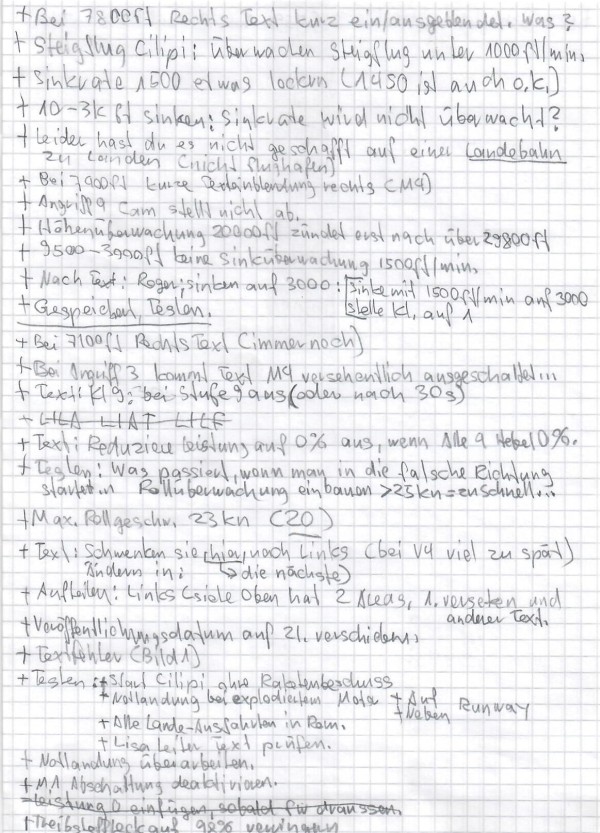 + Bei 7800ft Rechts Text kurz ein/ausgeblendet. Was?
+ Steigflug Cilipi: überwachen Steigflug unter 1000ft/min.
+ Sinkrate 1500 etwas lockern (1450 ist auch o.k.)
+ 10-3k ft sinken: Sinkrate wird nicht überwacht?
+ Leider hast du es nicht geschafft auf einer Landebahn
zu Landen (nicht Flughafen)
+ Bei 7900ft kurze Texteinblendung rechts (M4)
+ Angriff 9 Cam stellt nicht ab.
+ Höhenüberwachung 20000ft zündet erst nach über 29800ft
+ 9500-3900ft keine Sinküberwachung 1500ft/min.
+ Nach Text: Roger, sinken auf 3000: Sinke mit 1500ft/min auf 3000
stelle Kl. auf 1
+ Gespeichert, Testen.
+ Bei 7100ft Rechts Text (immer noch)
+ Bei Angriff 3 kommt Text M4 versehentlich ausgeschaltet...
+ Text: Kl 9: bei Stufe 9 aus (oder nach 30s)
+ LILA LIAT LILF
+ Text: Reduziere Leistung auf 0% aus, wenn Alle 4 Hebel 0%.
+ Testen: Was passiert, wenn man in die falsche Richtung
startet... Rollüberwachung einbauen >25kn = zu schnell...
+ Max. Rollgeschw. 23kn (20)
+ Text: Schwenken sie hier nach Links (bei V4 viel zu spät)
Ändern in: die nächste)
+ Aufteilen: Links (siehe Oben hat 2 Areas, 1. versetzen und
anderer Text.
+ Veröffentlichungsdatum auf 21. verschieben.
+ Textfehler (Bild 1)
+ Testen: + Start Cilipi ohne Raketenbeschuss
+ Notlandung bei explodiertem Motor + Auf
+ Neben Runway
+ Alle Lande-Ausfahrten in Rom.
+ Lisa Leiter Text prüfen.
+ Notlandung überarbeiten.
+ M1 Abschaltung deaktivieren.
+ Leistung 0 einfügen, sobald für draussen.
+ Treibstoffleck auf 98% verringern